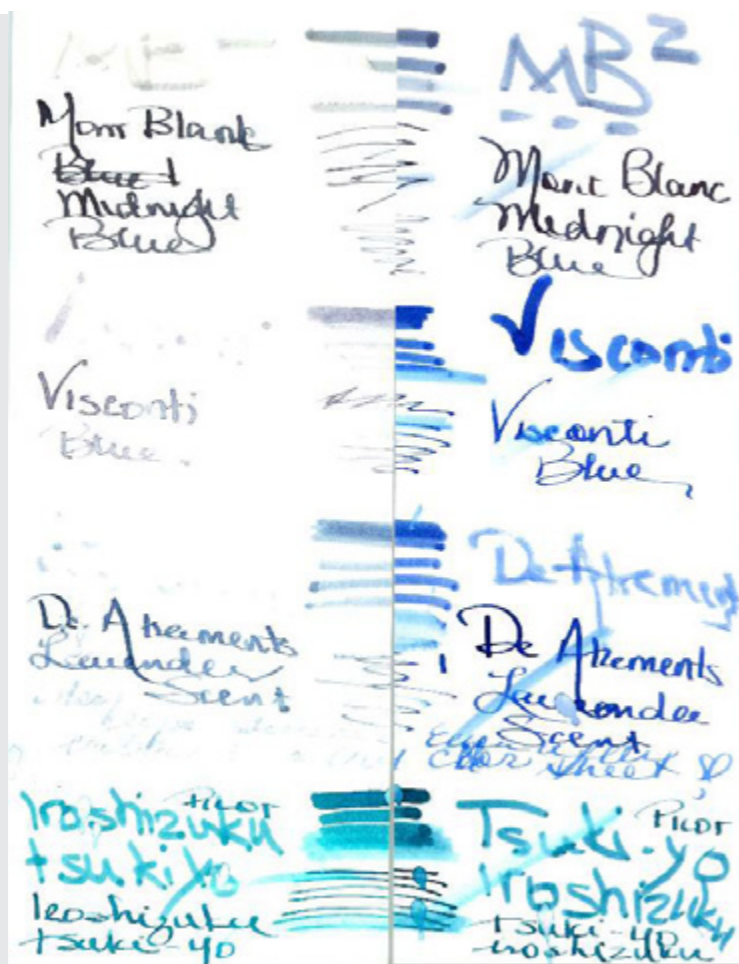 MB
Mont Blank
Blue
Midnight
Blue
Visconti
Blue.
De Atraments
Lavender
Scent
PILOT
Iroshizuku
tsukiyo
Iroshizuku
tsuki-yo
MB²
Mont Blanc
Midnight
Blue
Visconti
Visconti
Blue
De Atraments
De Atraments
Lavender
Scent
sheet
PILOT
Tsuki-yo
Iroshizuku
tsuki-yo
iroshizuku